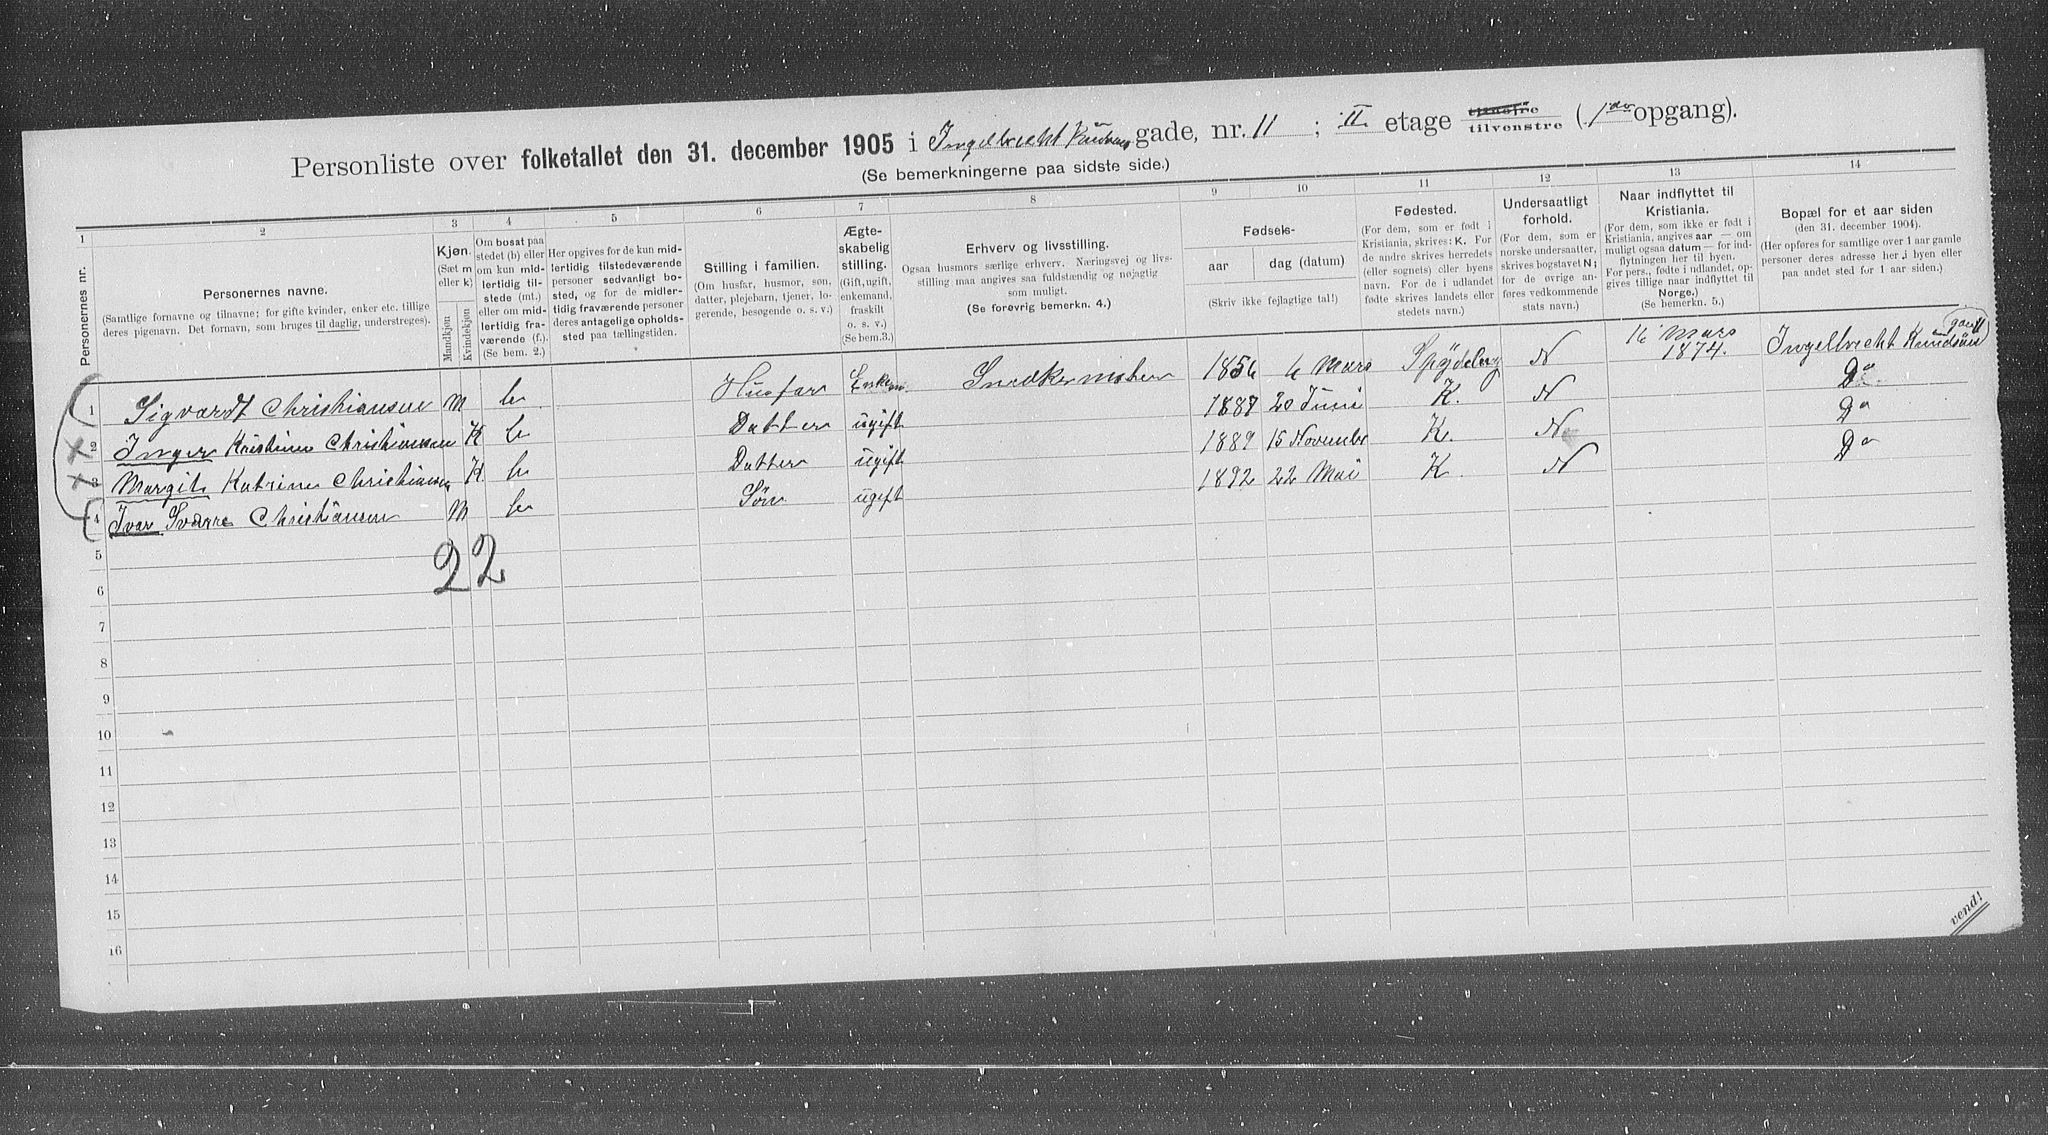 Personliste over folketallet den 31. december 1905 i Ingelbrecht Knudsens gade, nr. 11 ; II. etage tilhøire tilvenstre (1ste opgang).
(Se bemerkningerne paa sidste side.)
1 2 3 4 5 6 7 8 9 10 11 12 13 14
Personernes nr.
Personernes navne.
(Samtlige fornavne og tilnavne; for gifte kvinder, enker etc. tillige
deres pigenavn. Det fornavn, som bruges til daglig, understreges).
Kjøn.
(Sæt m
eller k)
Mandkjøn
Kvindekjøn
Om bosat paa
stedet (b) eller
om kun mid-
lertidig til-
stede (mt.)
eller om mid-
lertidig fra-
værende (f.).
(Se bem. 2.)
Her opgives for de kun mid-
lertidig tilstedeværende
personer sedvanligt bo-
sted, og for de midler-
tidig fraværende personer
deres antagelige opholds-
sted paa tællingstiden.
Stilling i familien.
(Om husfar, husmor, søn,
datter, plejebarn, tjener, lo-
gerende, besøgende o. s. v.)
Ægte-
skabelig
stilling.
(Gift, ugift,
enkemand,
fraskilt
o. s. v.)
(Se bem.3.)
Erhverv og livsstilling.
Ogsaa husmors særlige erhverv. Næringsvej og livs-
stilling maa angives saa fuldstændig og nøjagtig
som muligt.
(Se forøvrig bemerkn. 4.)
Fødsels-
aar
dag (datum)
(Skriv ikke fejlagtige tal!)
Fødested.
(For dem, som er født i
Kristiania, skrives: K. For
de andre skrives herredets
(eller sognets) eller byens
navn. For de i udlandet
fødte skrives landets eller
stedets navn.)
Undersaatligt
forhold.
(For dem, som er
norske undersaatter,
skrives bogstavet N;
for de øvrige an-
føres vedkommende
stats navn.)
Naar indflyttet til
Kristiania.
(For dem, som ikke er født i
Kristiania, angives aar — om
muligt ogsaa datum — for ind-
flytningen her til byen.
For pers., fødte i udlandet, op-
gives tillige naar indflyttet til
Norge.)
(Se bemerkn. 5.)
Bopæl for et aar siden
(den 31. december 1904).
(Her opføres for samtlige over 1 aar gamle
personer deres adresse her i byen eller
paa andet sted for 1 aar siden.)
1 Sigvardt Christiansen M b Husfar Enkem. Snedkermester 1856 6 Mars Spydeberg N 16 Mars 1874. Ingelbrecht Knudsøns gade 11
2 Inger Kristine Christiansen K b Datter ugift 1887 20 Juni K. N Do
3 Margit Katrine Christiansen K b Datter ugift 1889 15 November K. N Do
4 Ivar Sværre Christiansen M b Søn ugift 1892 22 Mai K N Do
22
5
6
7
8
9
10
11
12
13
14
15
16
vend!